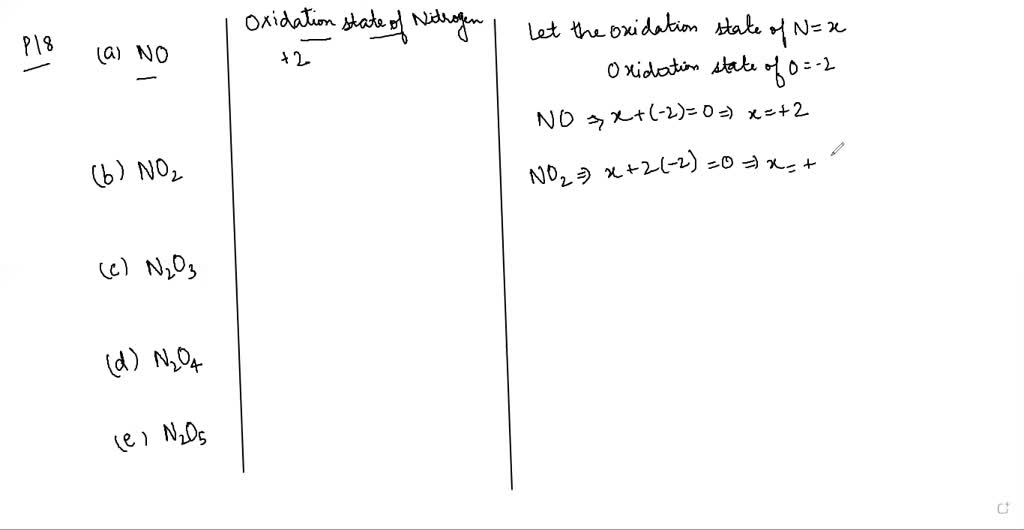 P18
(a) NO
(b) NO2
(c) N2O3
(d) N2O4
(e) N2O5
Oxidation state of Nitrogen
+2
Let the oxidation state of N=x
Oxidation state of O=-2
NO ⇒ x+(-2)=0 ⇒ x=+2
NO2 ⇒ x+2(-2)=0 ⇒ x=+